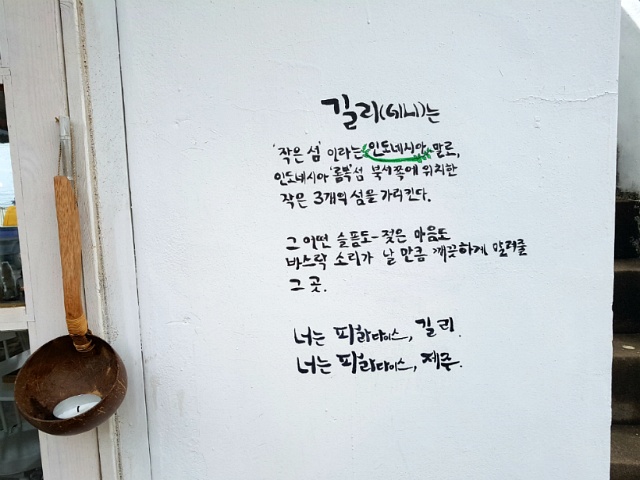 길리(GILI)는
'작은 섬' 이라는 인도네시아 말로,
인도네시아 '롬복'섬 북서쪽에 위치한
작은 3개의 섬을 가리킨다.
그 어떤 슬픔도-젖은 마음도
바스락 소리가 날 만큼 깨끗하게 말려줄
그 곳.
너는 파라다이스, 길리.
너는 파라다이스, 제주.